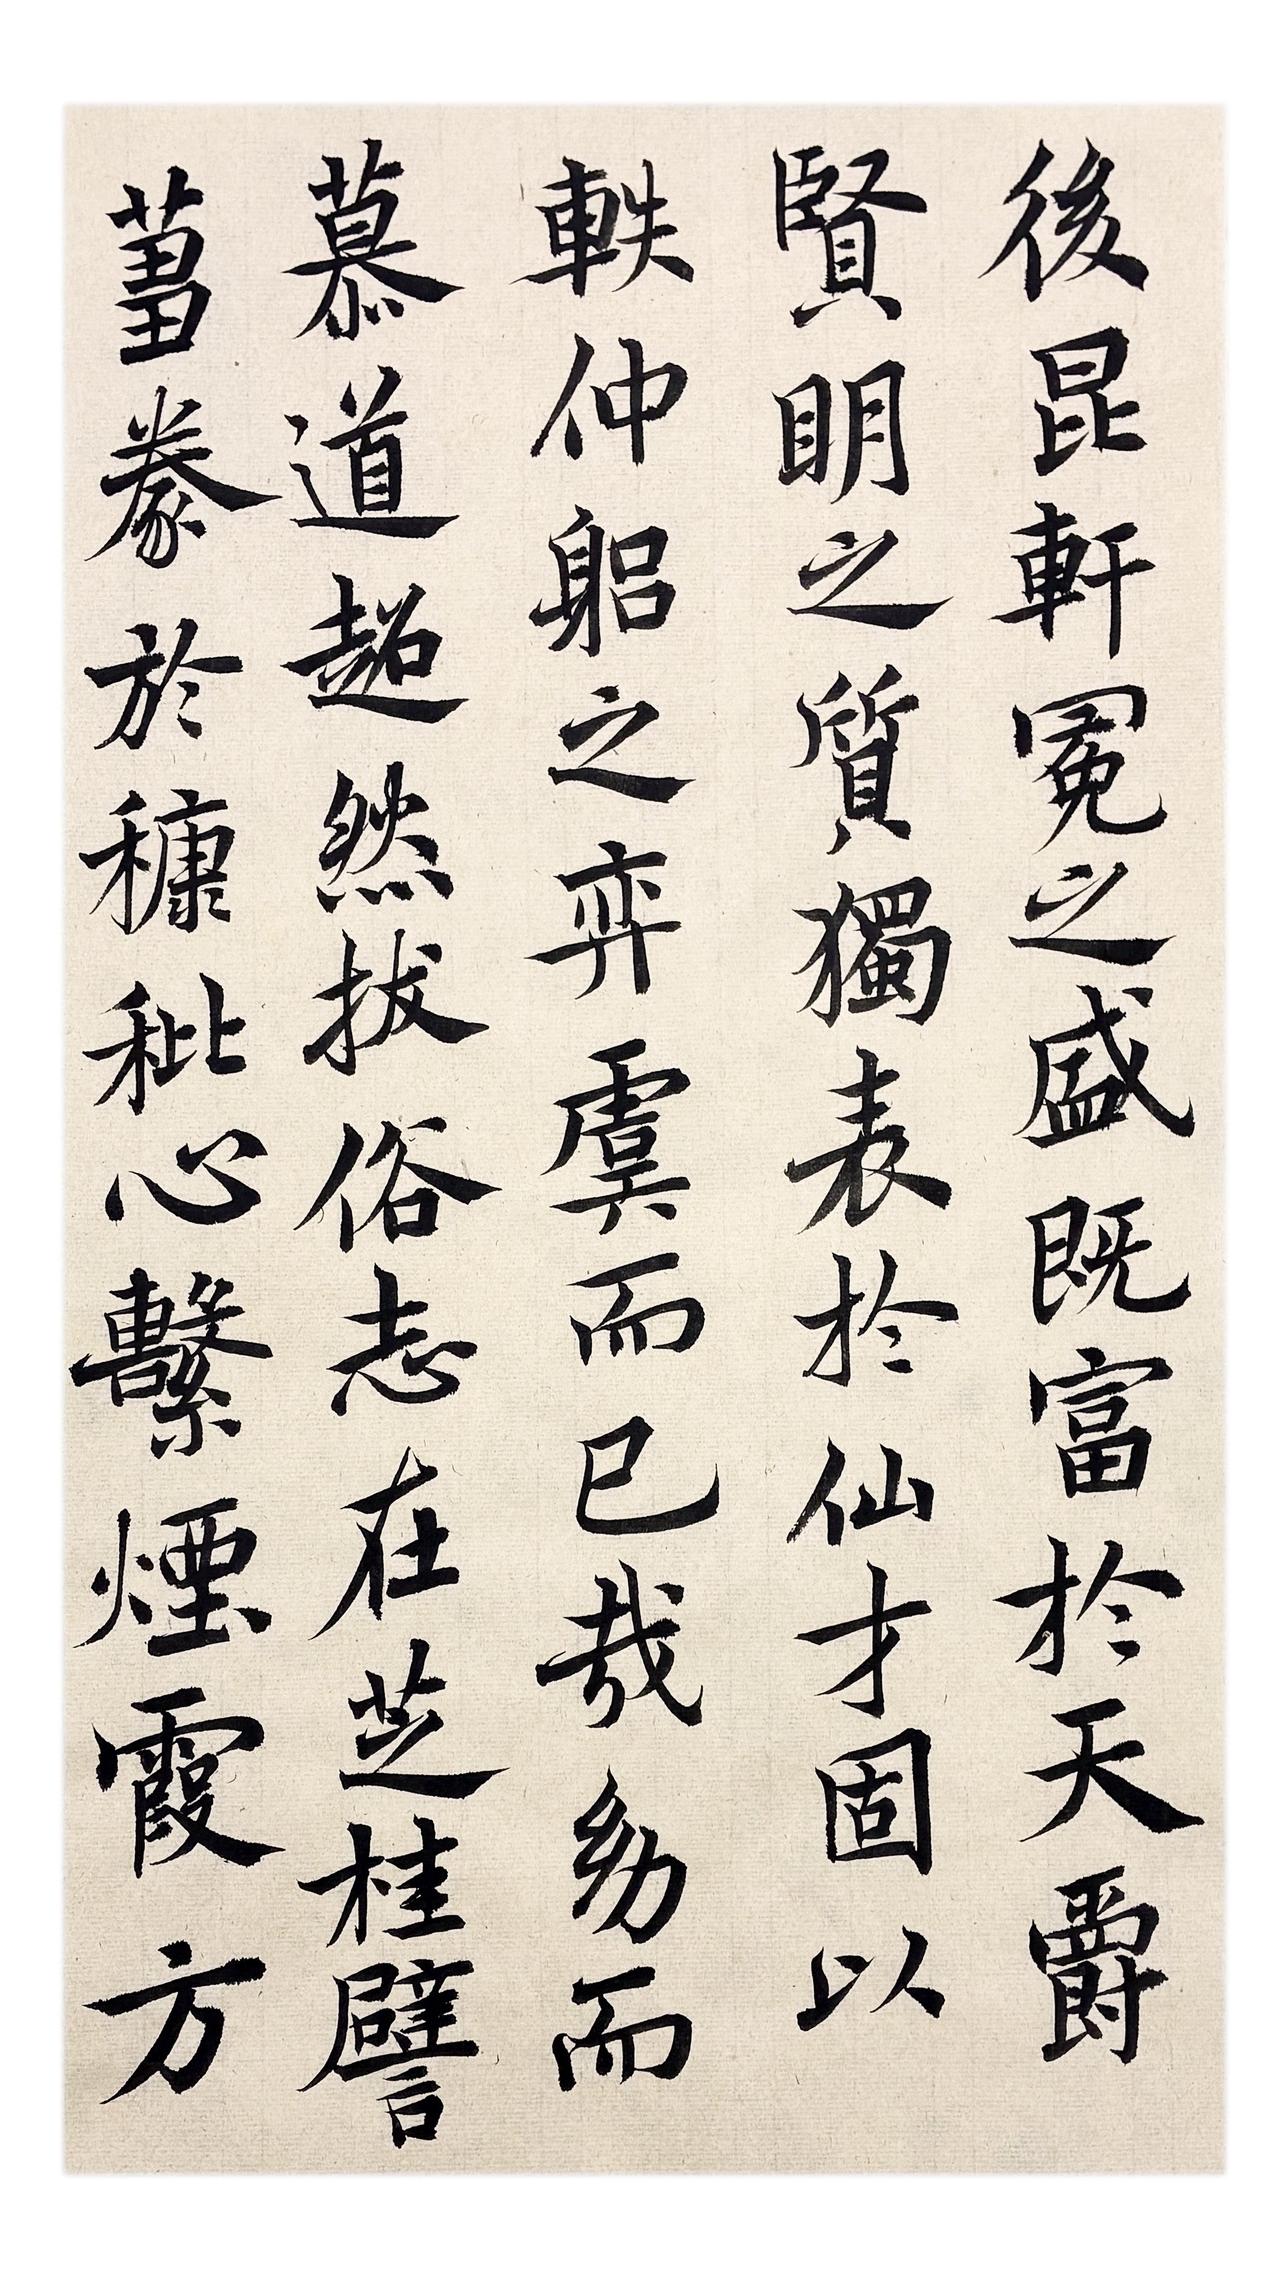 後昆軒冕之盛既富於天爵
賢明之質獨表於仙才固以
軼仲躳之弈虞而已哉幼而
慕道超然拔俗志在芝桂譬
蒭豢於穅秕心繫煙霞方